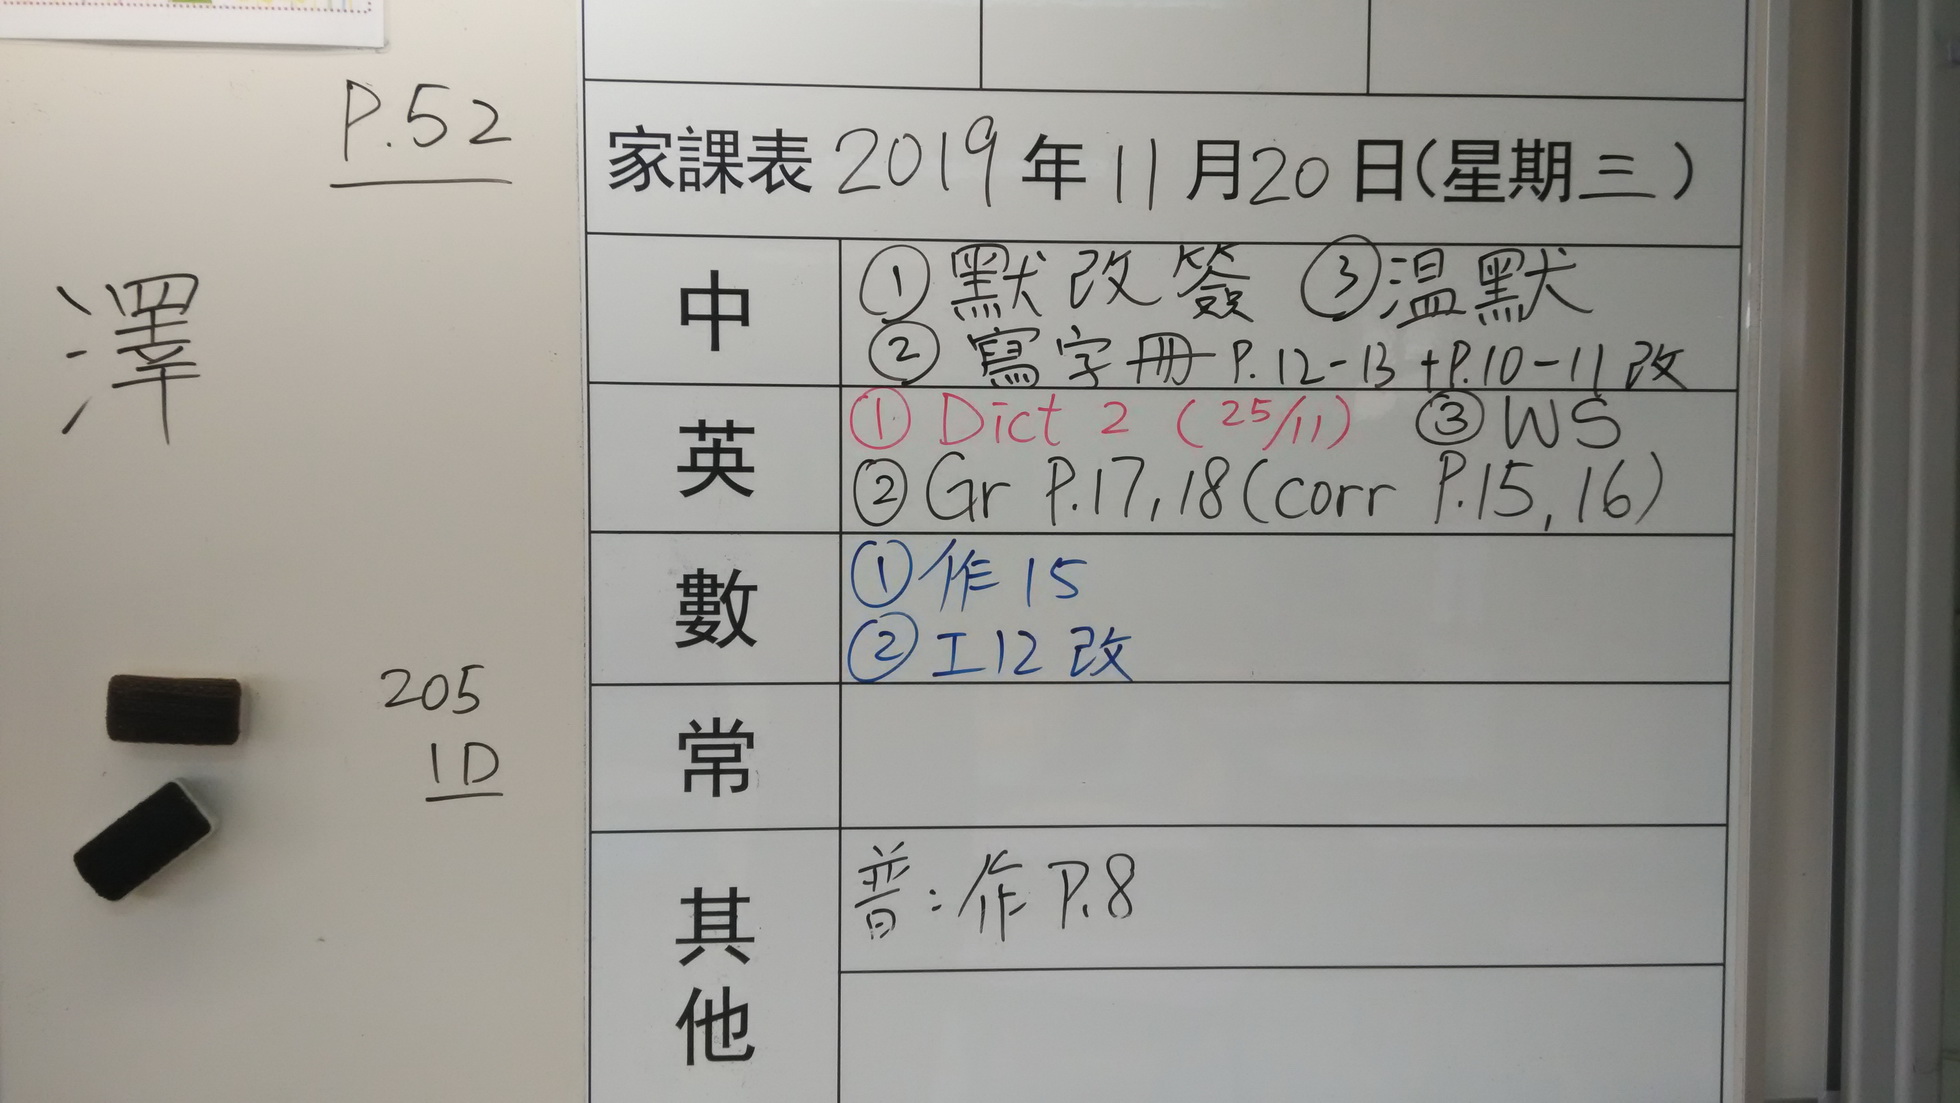 P.52
澤
205
1D
家課表 2019 年 11 月 20 日(星期三)
中
① 默改簽 ③ 温默
② 寫字冊 P.12-13 +P.10-11 改
英
① Dict 2 (25/11) ③ WS
② Gr P.17,18 (corr P.15,16)
數
① 作 15
② 工12 改
常
其他
普:作 P.8